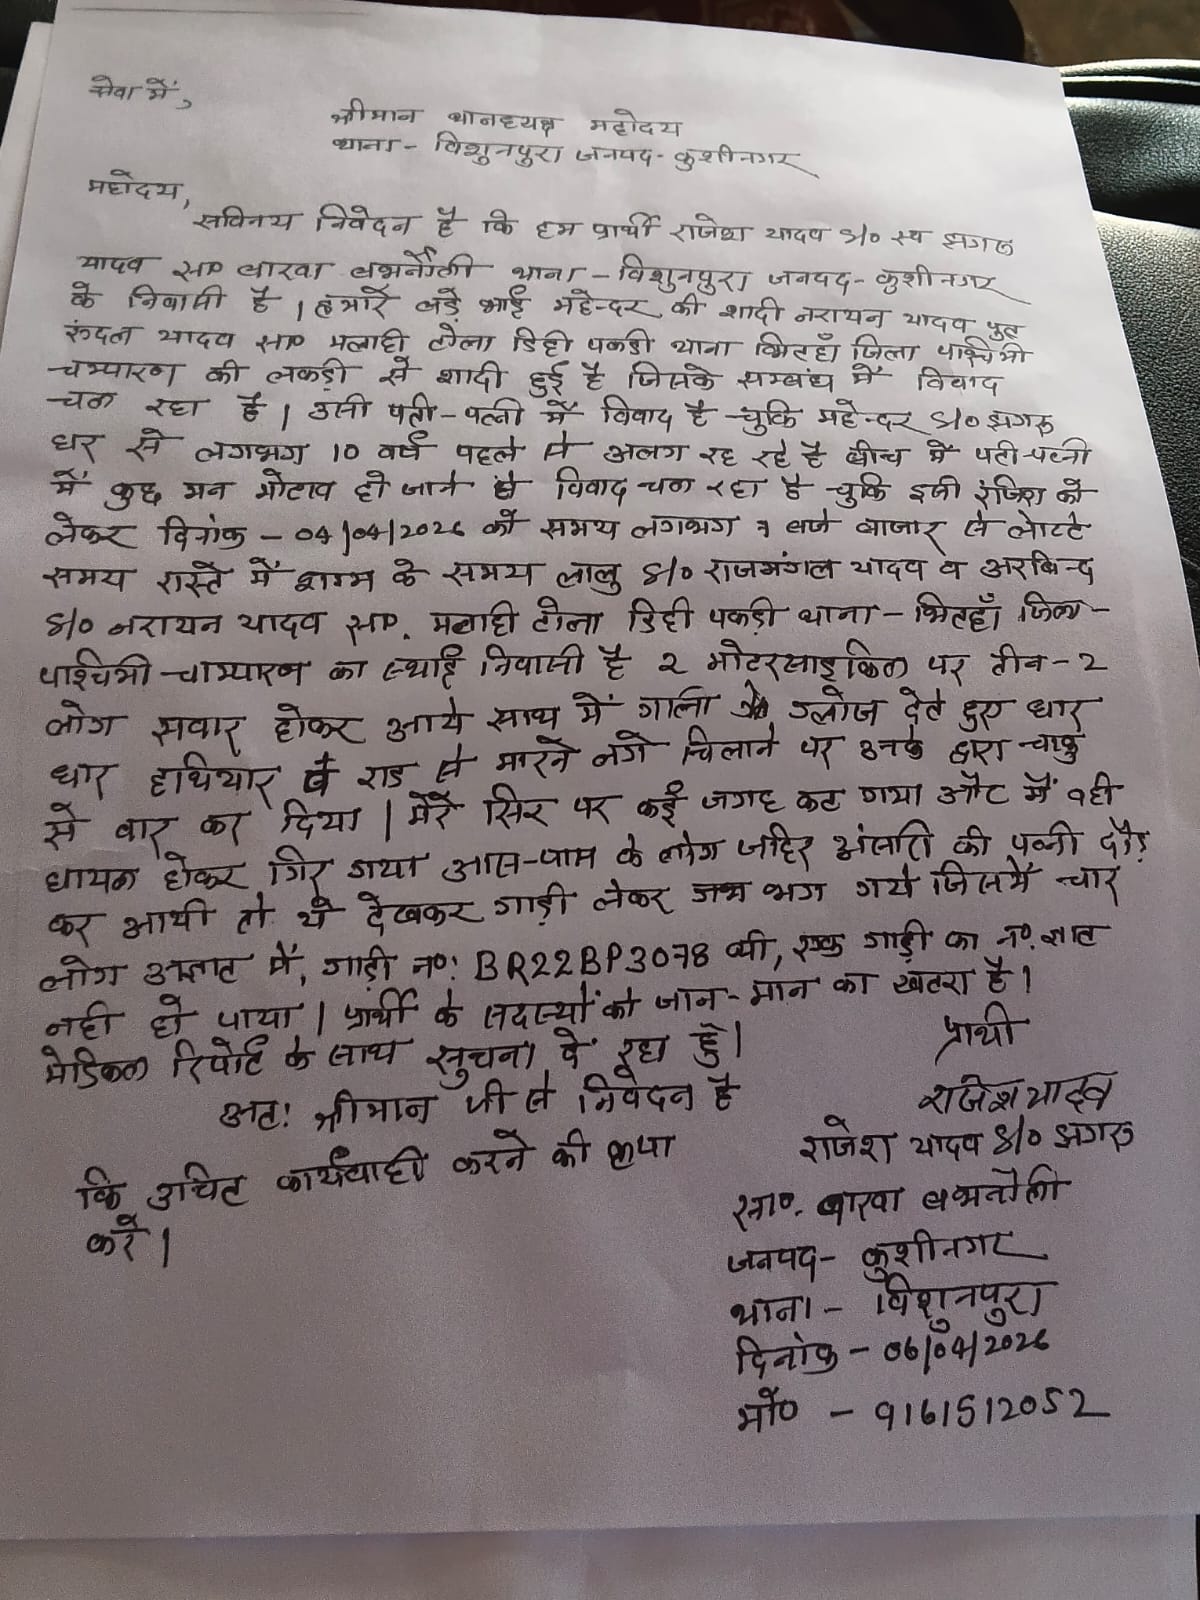 सेवा में,
श्रीमान थानाध्यक्ष महोदय
थाना - विशुनपुरा जनपद - कुशीनगर
महोदय,
सविनय निवेदन है कि हम प्रार्थी राजेश यादव S/o स्व झगरू
यादव सा० बारवा थाना - विशुनपुरा जनपद - कुशीनगर
के निवासी है। हमारे बड़े भाई महेन्दर की शादी नरायन यादव पुत्र
यादव सा० मलाही टोला डिही पकड़ी थाना भितहाँ जिला पाश्चिमी
चम्पारण की लकड़ी से शादी हुई है जिसके सम्बंध में विवाद
चल रहा है। उसी पती-पत्नी में विवाद है चुकि महेन्दर S/o झगरू
घर से लगभग 10 वर्ष पहले से अलग रह रहे है बीच में पती-पत्नी
में कुछ मन मोटाव हो जाने से विवाद चल रहा है चुकि इसी रंजिश को
लेकर दिनांक - 04/04/2026 को समय लगभग 7 बजे बाजार से लोटते
समय रास्ते में शाम के समय लालु S/o राजमंगल यादव व अरबिन्द
S/o नरायन यादव सा०. मलाही टोला डिही पकड़ी थाना - भितहाँ जिला -
पाश्चिमी चाम्पारण का स्थाई निवासी है 2 मोटरसाइकिल पर तीन-2
लोग सवार होकर आये साथ में गाली गलोज देते हुए धार
धार हथियार व राड से मारने लगे चिलाने पर उनके द्वारा चाकु
से वार कर दिया। मेरे सिर पर कई जगह कट गया और मैं वही
घायल होकर गिर गया आस-पास के लोग जहिर अंसारी की पत्नी दौड़
कर आयी तो ये देखकर गाड़ी लेकर भग गये जिसमें चार
लोग अज्ञात में, गाड़ी न०: BR22BP3078 थी, एक गाड़ी का न०. ज्ञात
नही हो पाया। प्रार्थी के सदस्यों को जान-मान का खतरा है।
मेडिकल रिपोर्ट के साथ सुचना दे रहा हुँ।
प्रार्थी
अत: श्रीमान जी से निवेदन है
कि उचित कार्यवाही करने की कृपा
करें।
राजेश यादव
राजेश यादव S/o झगरू
सा०. बारवा
जनपद - कुशीनगर
थाना - विशुनपुरा
दिनांक - 06/04/2026
मो० - 9161512052